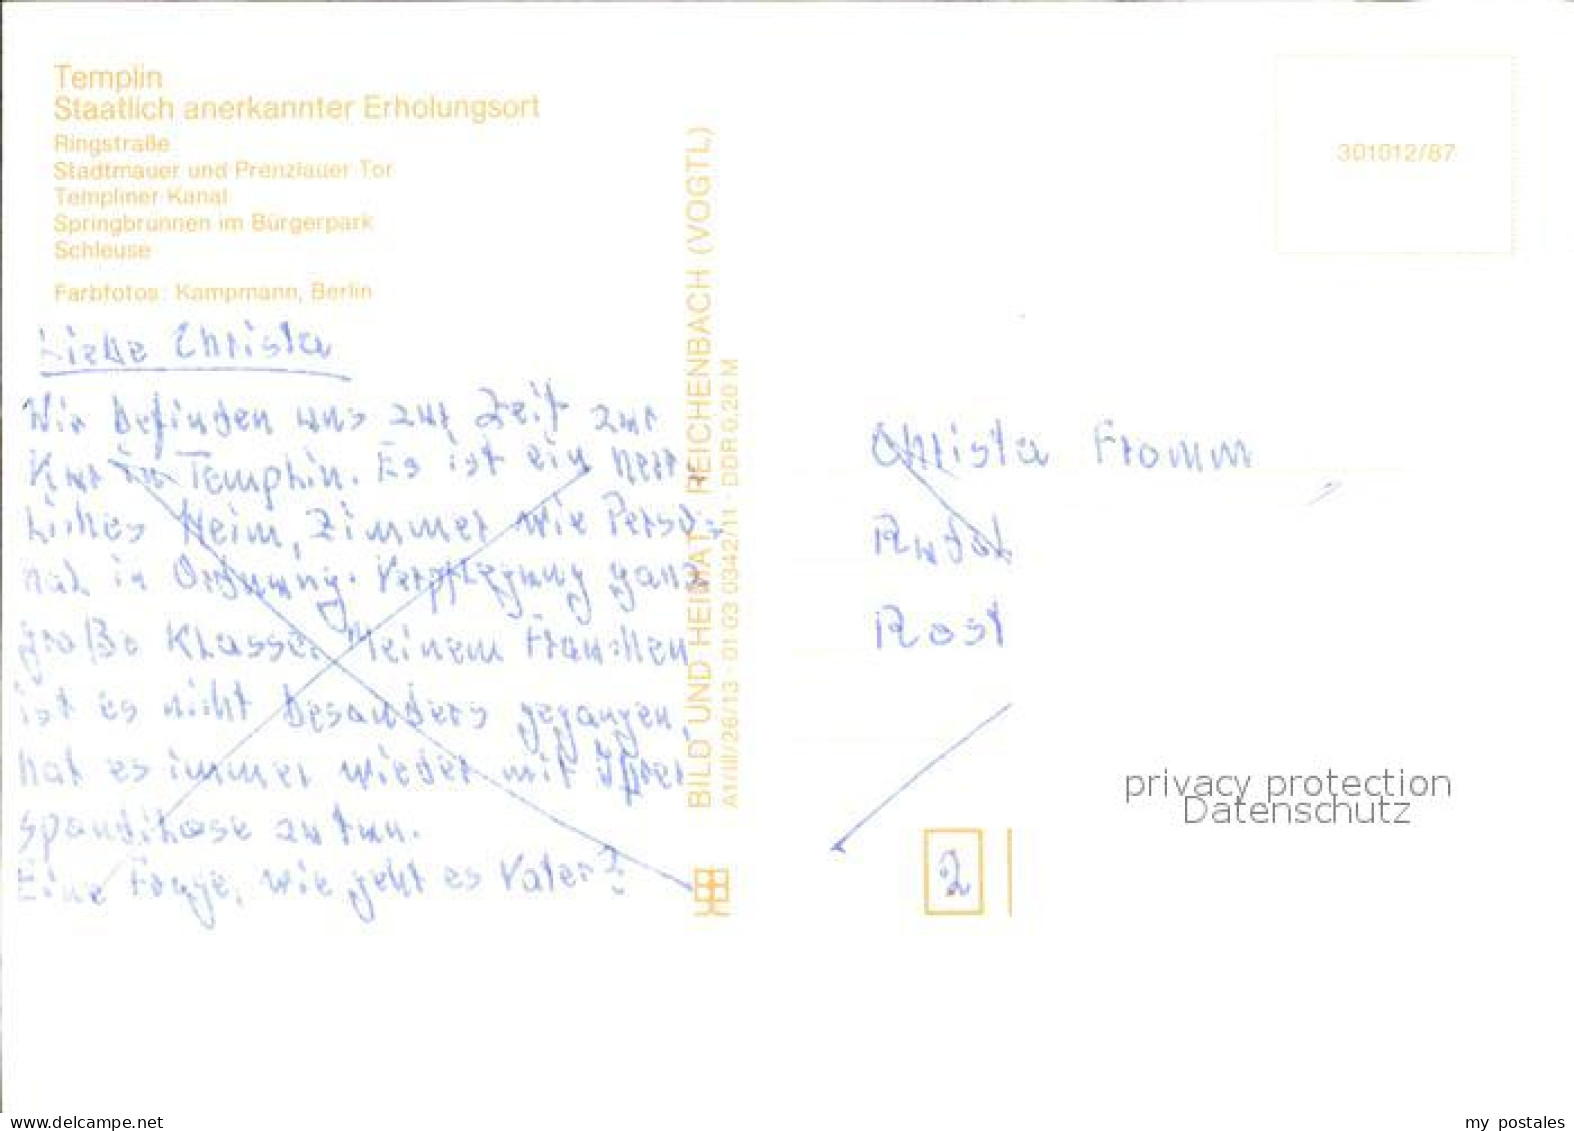 Templin
Staatlich anerkannter Erholungsort
Ringstraße
Stadtmauer und Prenzlauer Tor
Templiner Kanal
Springbrunnen im Bürgerpark
Schleuse
Farbfotos: Kampmann, Berlin
Liebe Christa
Wir befinden uns zur Zeit zur
Kur in Templin. Es ist ein herr-
liches Heim, Zimmer wie Perso-
nal in Ordnung. Verpflegung ganz
große Klasse. Meinem Frauchen
ist es nicht besonders gegangen,
hat es immer wieder mit ihrer
zu tun.
Eine Frage, wie geht es Vater?
BILD UND HEIMAT REICHENBACH (VOGTL)
A1/III/26/13 · 01 03 0342/11 · DDR 0,20 M
301012/87
Christa Fromm
Rudol
Rost
privacy protection
Datenschutz
2
www.delcampe.net
my_postales